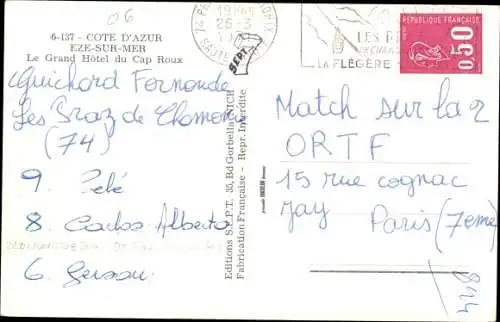 06
6-137 - COTE D'AZUR
EZE-SUR-MER
Le Grand Hôtel du Cap Roux
Guichard Fernonde
Les Praz de Chamonix
(74)
9. Pelé
8. Carlos Alberto
6. Gerson
Editions S.E.P.T. 35, Bd Gorbella NICE
Fabrication Française - Rep. Interdite
SEPT
19H
26-3
LES PR
LA FLÉGÈRE
RÉPUBLIQUE FRANÇAISE
0,50
Match sur la 2
ORTF
15 rue cognac
Jay
Paris (7eme)